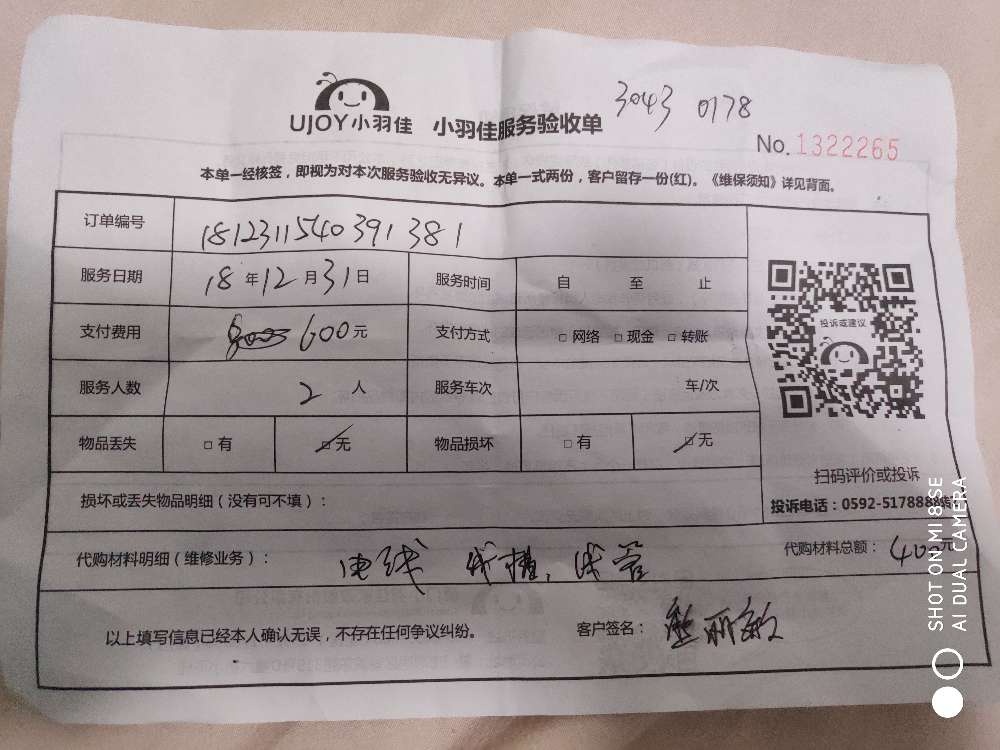 3043 0178
UJOY小羽佳 小羽佳服务验收单
No. 1322265
本单一经核签，即视为对本次服务验收无异议。本单一式两份，客户留存一份(红)。《维保须知》详见背面。
订单编号 1812311540391381
服务日期 18 年 12 月 31 日 服务时间 自 至 止
支付费用 600元 支付方式 □ 网络 □ 现金 □ 转账
服务人数 2 人 服务车次 车/次
物品丢失 □ 有 □ 无 物品损坏 □ 有 □ 无
投诉或建议
扫码评价或投诉
投诉电话：0592-5178888转1
损坏或丢失物品明细（没有可不填）：
代购材料明细（维修业务）： 电线 线槽、线管 代购材料总额： 400元
以上填写信息已经本人确认无误，不存在任何争议纠纷。 客户签名： 熊丽敏
SHOT ON MI 8SE
AI DUAL CAMERA